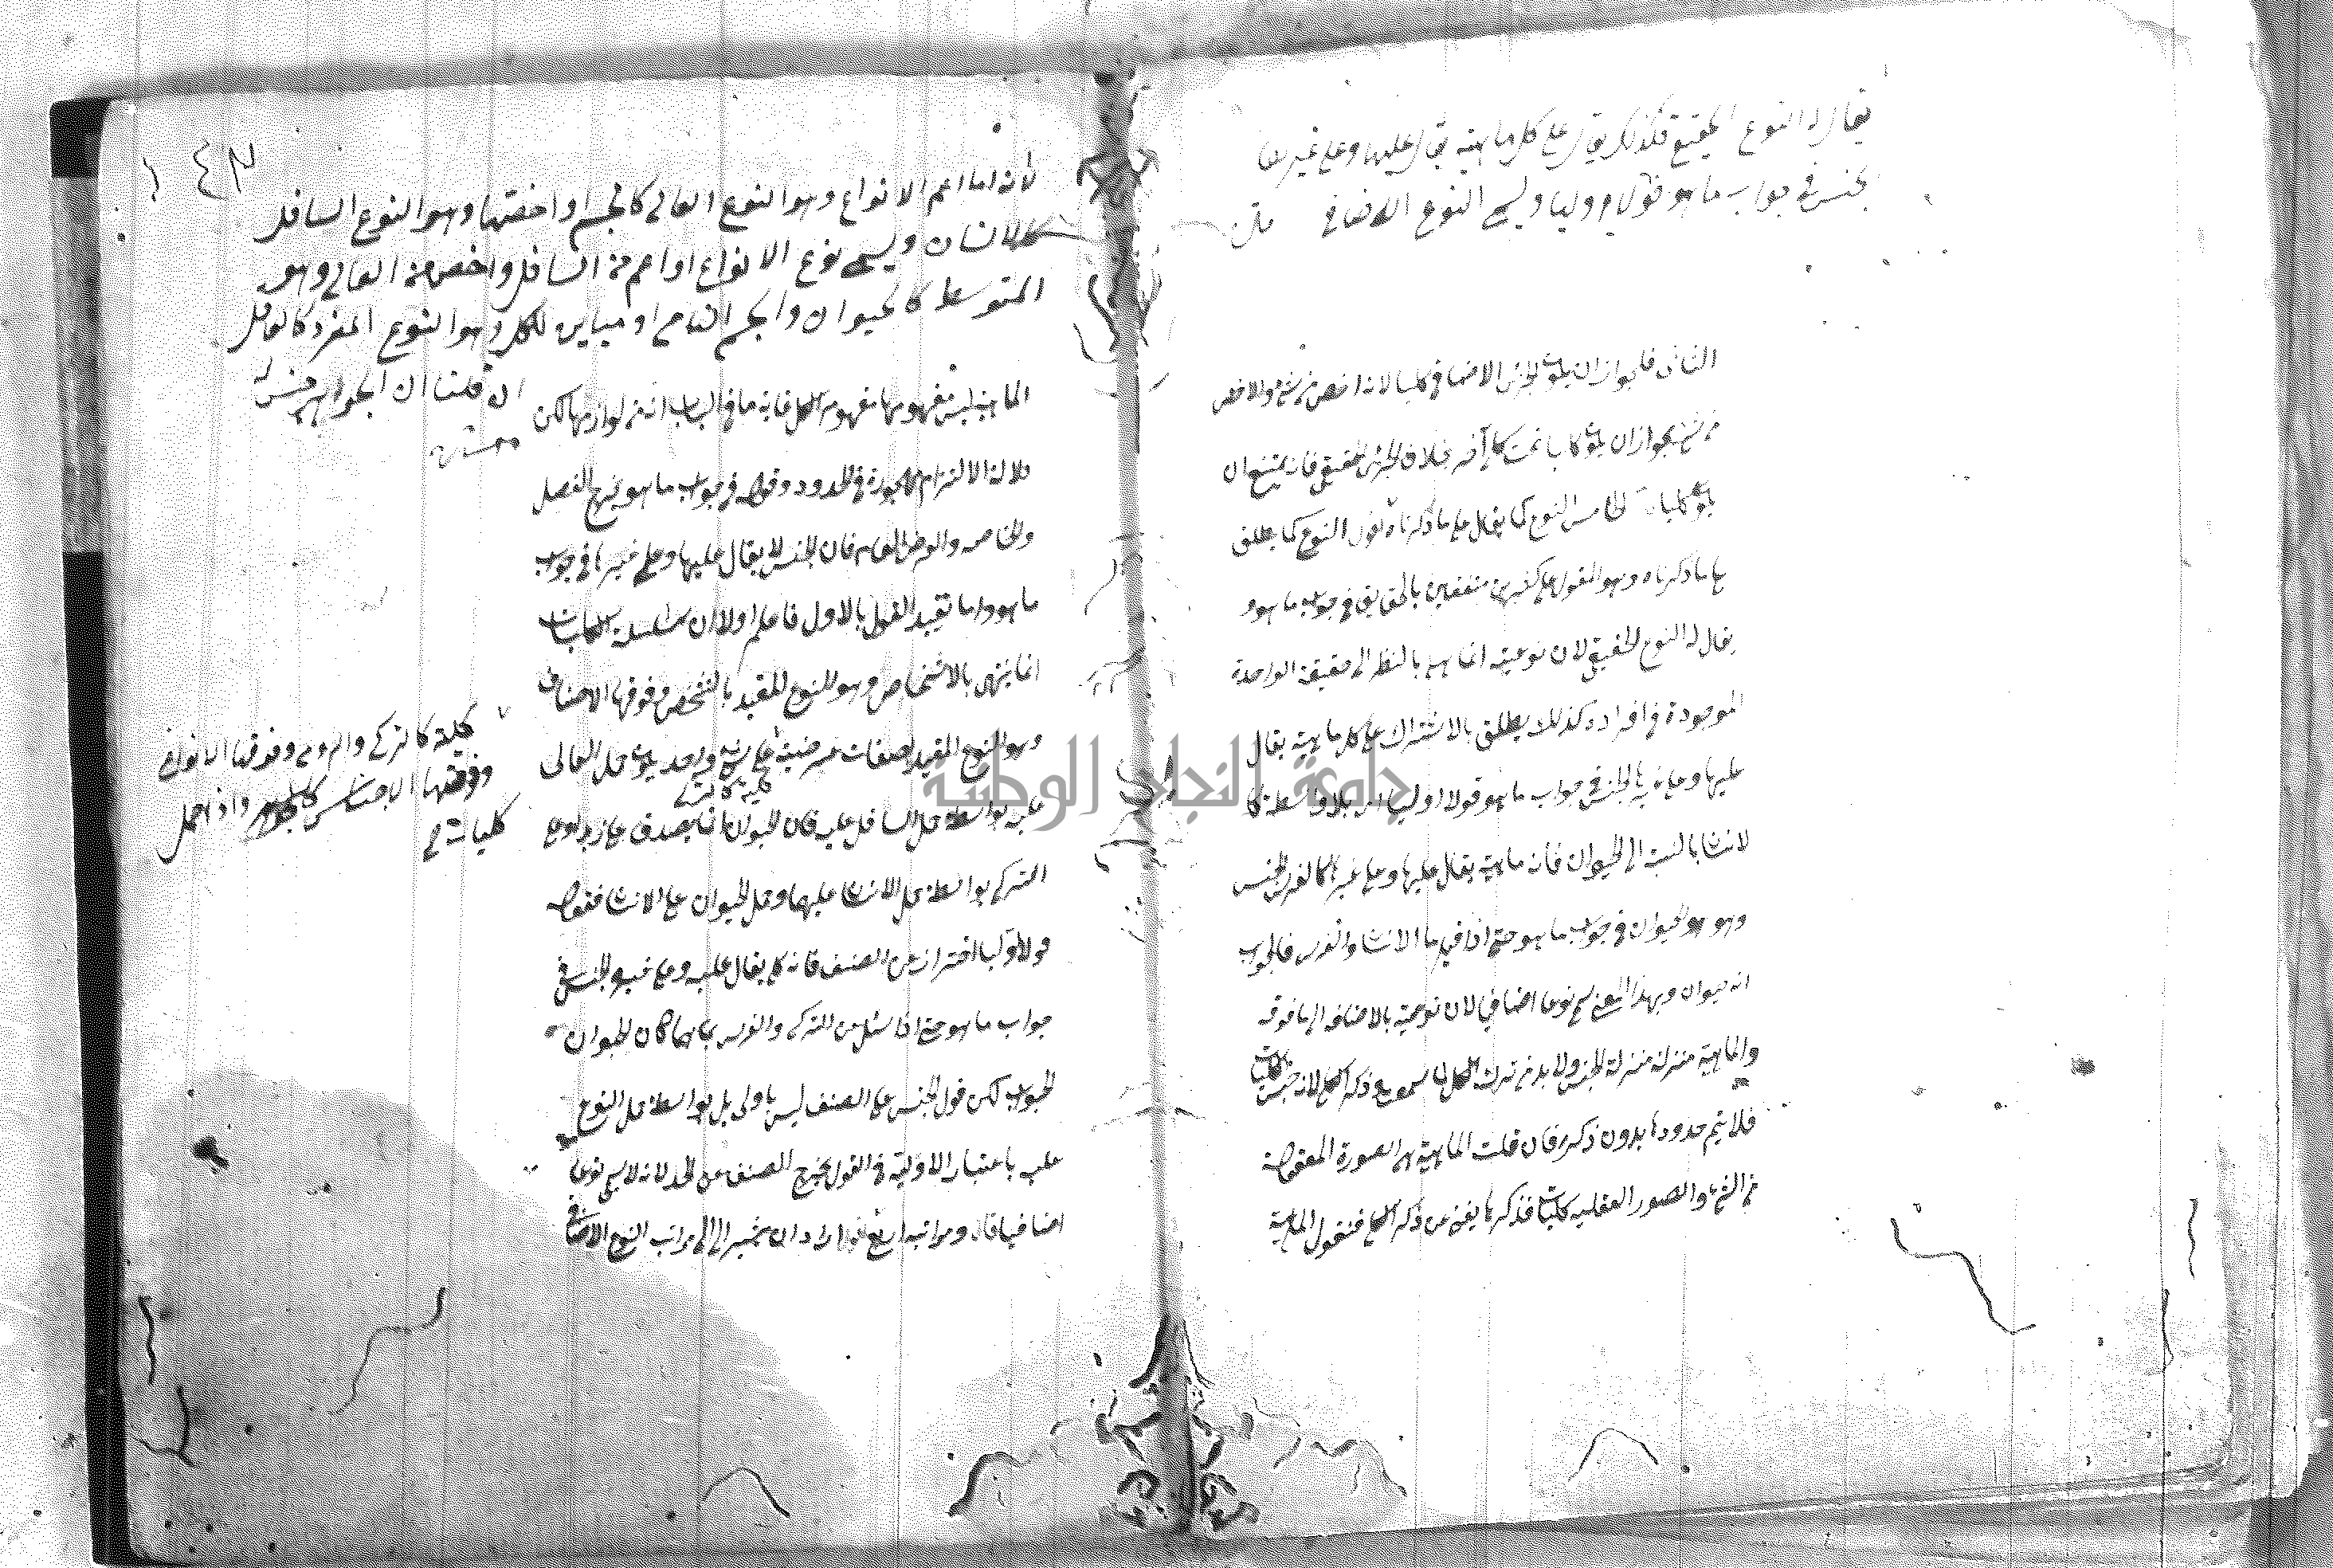 يقال له النوع الحقيقي فكذلك يقال على كل ماهية يقال عليها وعلى غيرها
الجنس في جواب ما هو قولا اوليا ويسمى النوع الاضافي متن
الثاني فلجواز ان يكون الجزئي الاضافي كليا لانه اخص من شيء والاخص
من شيء يجوز ان يكون كليا تحت كلي آخر بخلاف الجزئي الحقيقي فانه يمتنع ان
يكون كليا الخامس النوع كما يقال على ما ذكرناه اقول النوع كما يطلق
على ما ذكرناه وهو المقول على كثيرين متفقين بالحقايق في جواب ما هو و
يقال له النوع الحقيقي لان نوعيته انما هي بالنظر الى حقيقته الواحدة
الموجودة في افراده كذلك يطلق بالاشتراك على كل ماهية يقال
عليها وعلى غيرها الجنس في جواب ما هو قولا اوليا اي بلا واسطة كا
لانسان بالنسبة الى الحيوان فانه ماهية يقال عليها وعلى غيرها كالفرس الجنس
وهو الحيوان في جواب ما هو حتى اذا قيل ما الانسان والفرس فالجواب
انه حيوان وبهذا المعنى يسمى نوعا اضافيا لان نوعيته بالاضافة الى ما فوقه
والماهية منزلة منزلة الجنس ولا بد من ترك الكلي لما سمع ذكر الكلي لانه جنس الكليات
فلا يتم حدودها بدون ذكره فان قلت الماهية هي الصورة المعقولة
من الشيء والصور العقلية كليات فذكرها يغني عن ذكر الكلي فنقول الماهية
١٤٣
لانه اما اعم الانواع وهو النوع العالي كالجسم او اخصها وهو النوع السافل
كالانسان ويسمى نوع الانواع او اعم من السافل واخص من العالي وهو
المتوسط كالحيوان والجسم النامي او مباين للكل وهو النوع المفرد كالعقل
ان قلنا ان الجوهر جنس له
الماهية ليس مفهومها مفهوم الكلي غاية ما في الباب انه من لوازمها لكن
دلالة الالتزام مهجورة في الحدود وقوله في جواب ما هو يخرج الفصل
والخاصه والعرض العام فان الجنس لا يقال عليها وعلى غيرها في جواب
ما هو واما تقييد القول بالاول فاعلم اولا ان سلسلة الكليات
انما ينتهي بالاشخاص وهو النوع المقيد بالتشخص وفوقها الاصناف
وهو النوع المقيد بصفات عرضية كلية كالتركي والرومي وفوقها الانواع
وفوقها الاجناس كالجوهر واذا حمل
كليات
على شيء واحد يكون حمل العالي
عليه بواسطة حمل السافل عليه فان الحيوان انما يصدق على زيد او على
التركي بواسطة حمل الانسان عليهما وحمل الحيوان على الانسان فقوله
قولا اوليا احتراز عن الصنف فانه كلي يقال عليه وعلى غيره الجنس في
جواب ما هو حتى اذا سئل عن التركي والفرس بما هما كان الحيوان
الجواب لكن قول الجنس على الصنف ليس باولى بل بواسطة حمل النوع
عليه باعتبار الاولية في القول يخرج الصنف عن الحد لانه لا يسمى نوعا
اضافيا قال ومراتبه اربع اقول اراد ان يشير الى مراتب النوع الاضافي
جامعة النجاح الوطنية